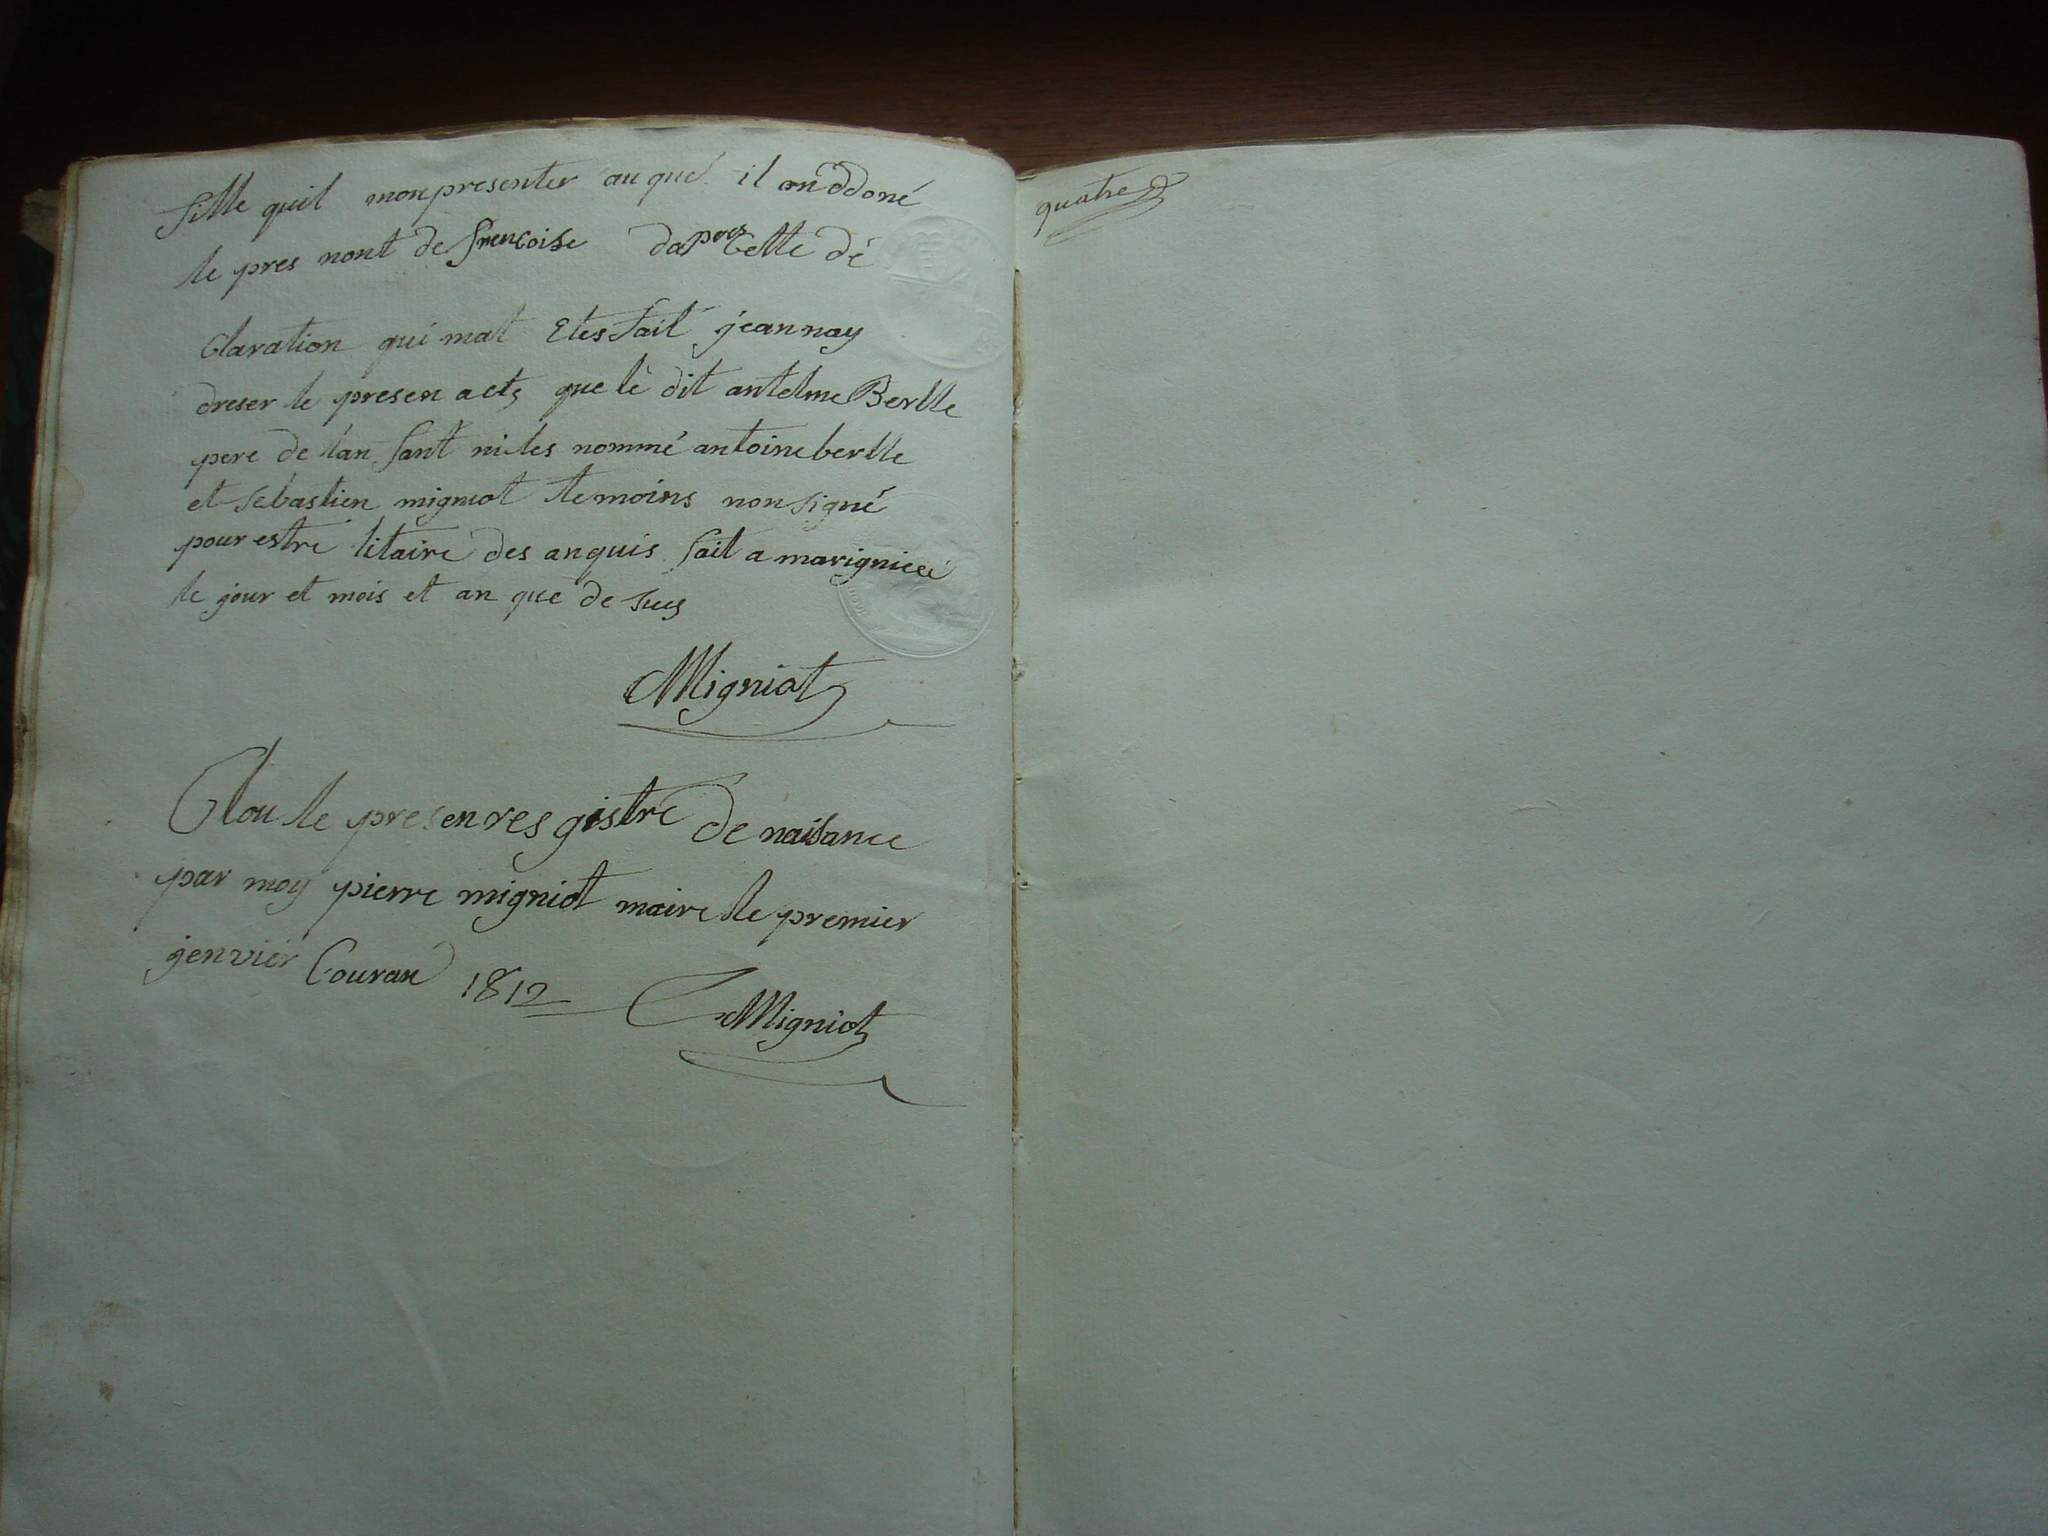 fille quil mon presenter auqué il on ddoné
le pres nont de frencoise dapres Cette dé
Claration qui mat Etes fait jeannay
dreser le presen acts que lè dit antelme Berlle
pere de lan fant niles nommé antoine berlle
et sebastien migniot temoins non signé
pour estre litaire des anquis fait a marignieé
le jour et mois et an que de sus
Migniot
Clou le presen resgistre de naisance
par moy pierre migniot maire le premier
jenvier Couran 1812
Migniot
quatre